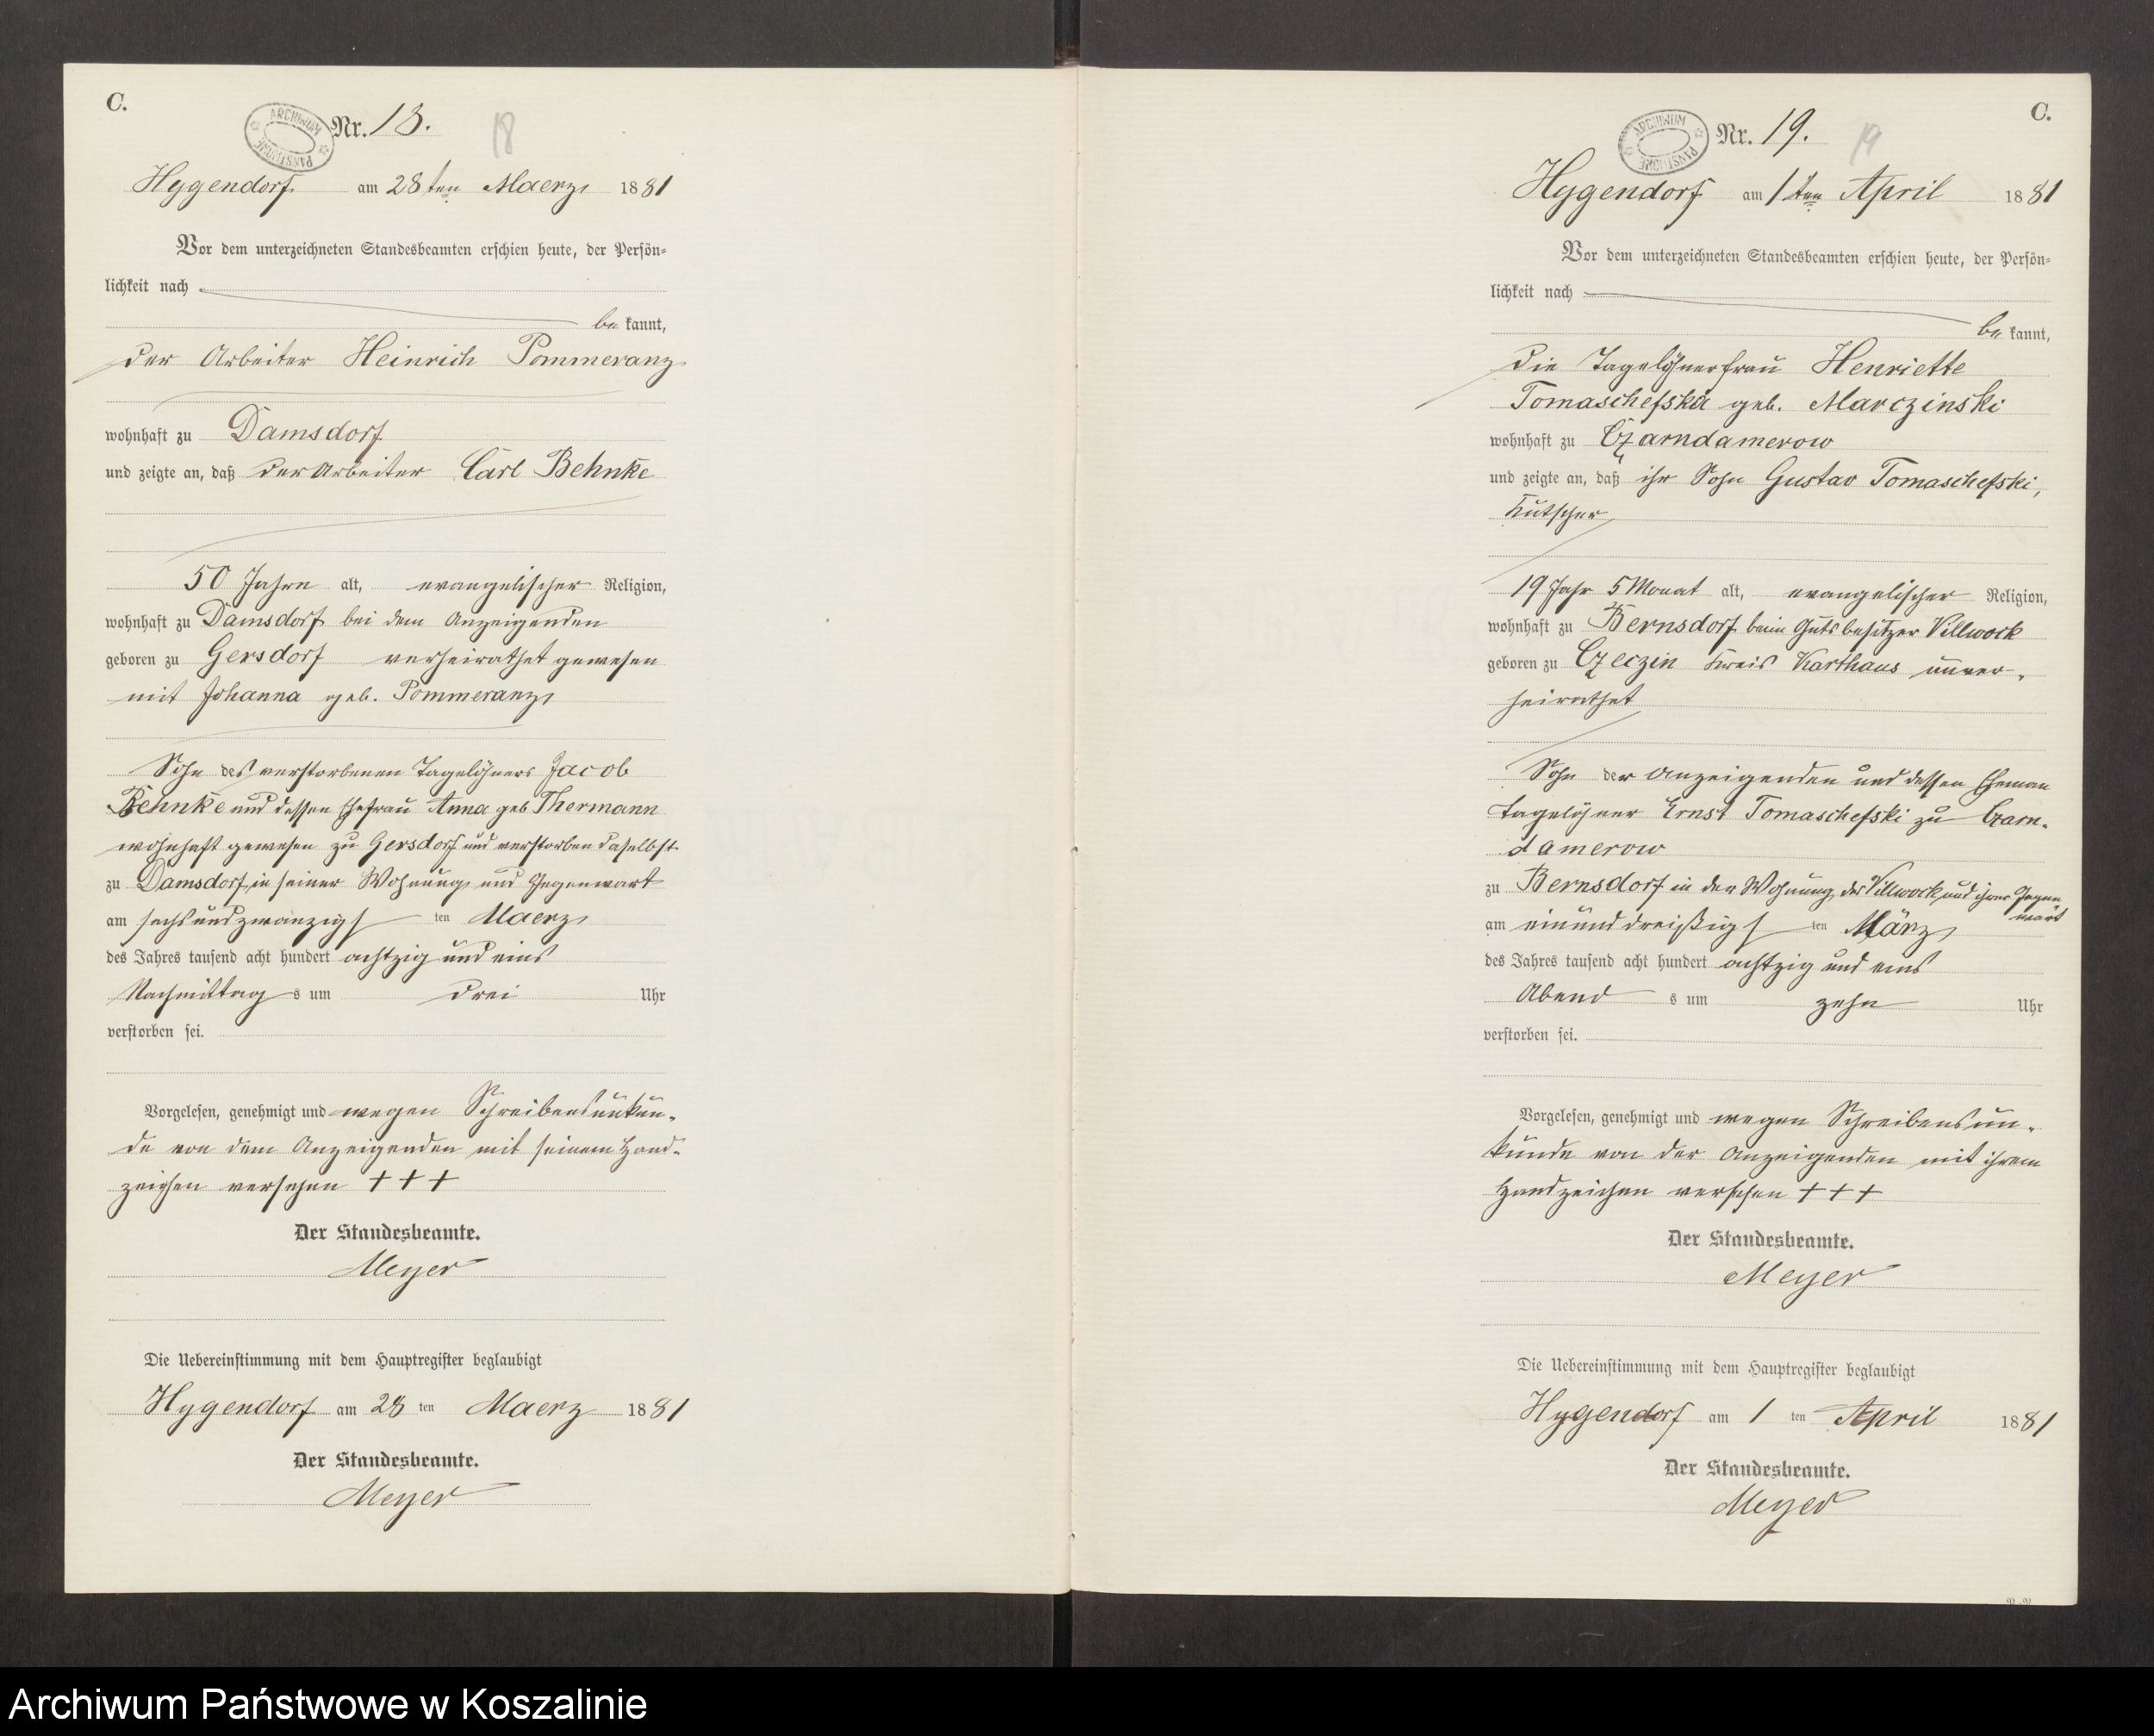 C.
ARCHIWUM PAŃSTWOWE
Nr. 18.
18
Hygendorf am 28ten Maerz 1881
Vor dem unterzeichneten Standesbeamten erschien heute, der Persön-
lichkeit nach
be kannt,
der Arbeiter Heinrich Pommeranz
wohnhaft zu Damsdorf
und zeigte an, daß der Arbeiter Carl Behnke
50 Jahre alt, evangelischer Religion,
wohnhaft zu Damsdorf bei dem Anzeigenden
geboren zu Gersdorf verheirathet gewesen
mit Johanna geb. Pommeranz
Sohn des verstorbenen Tagelöhners Jacob
Behnke und dessen Ehefrau Anna geb Thermann
wohnhaft gewesen zu Gersdorf und verstorben daselbst
zu Damsdorf in seiner Wohnung und Gegenwart
am sechsundzwanzigs ten Maerz
des Jahres tausend acht hundert achtzig und eins
Nachmittag s um drei Uhr
verstorben sei.
Vorgelesen, genehmigt und wegen Schreibensunkun-
de von dem Anzeigenden mit seinem Hand-
zeichen versehen +++
Der Standesbeamte.
Meyer
Die Uebereinstimmung mit dem Hauptregister beglaubigt
Hygendorf am 28 ten Maerz 1881
Der Standesbeamte.
Meyer
C.
ARCHIWUM PAŃSTWOWE
Nr. 19.
19
Hygendorf am 1ten April 1881
Vor dem unterzeichneten Standesbeamten erschien heute, der Persön-
lichkeit nach
be kannt,
die Tagelöhnerfrau Henriette
Tomaschefska geb. Marczinski
wohnhaft zu Czarndamerow
und zeigte an, daß ihr Sohn Gustav Tomaschefski,
Kutscher
19 Jahr 5 Monat alt, evangelischer Religion,
wohnhaft zu Bernsdorf beim Gutsbesitzer Villwock
geboren zu Czeczin Kreis Karthaus unver-
heirathet
Sohn der Anzeigenden und dessen Eheman
Tagelöhner Ernst Tomaschefski zu Czarn-
damerow
zu Bernsdorf in der Wohnung des Villwock und ihrer Gegen
wart
am einunddreißigs ten März
des Jahres tausend acht hundert achtzig und eins
Abend s um zehn Uhr
verstorben sei.
Vorgelesen, genehmigt und wegen Schreibensun-
kunde von der Anzeigenden mit ihrem
Handzeichen versehen +++
Der Standesbeamte.
Meyer
Die Uebereinstimmung mit dem Hauptregister beglaubigt
Hygendorf am 1 ten April 1881
Der Standesbeamte.
Meyer
Archiwum Państwowe w Koszalinie